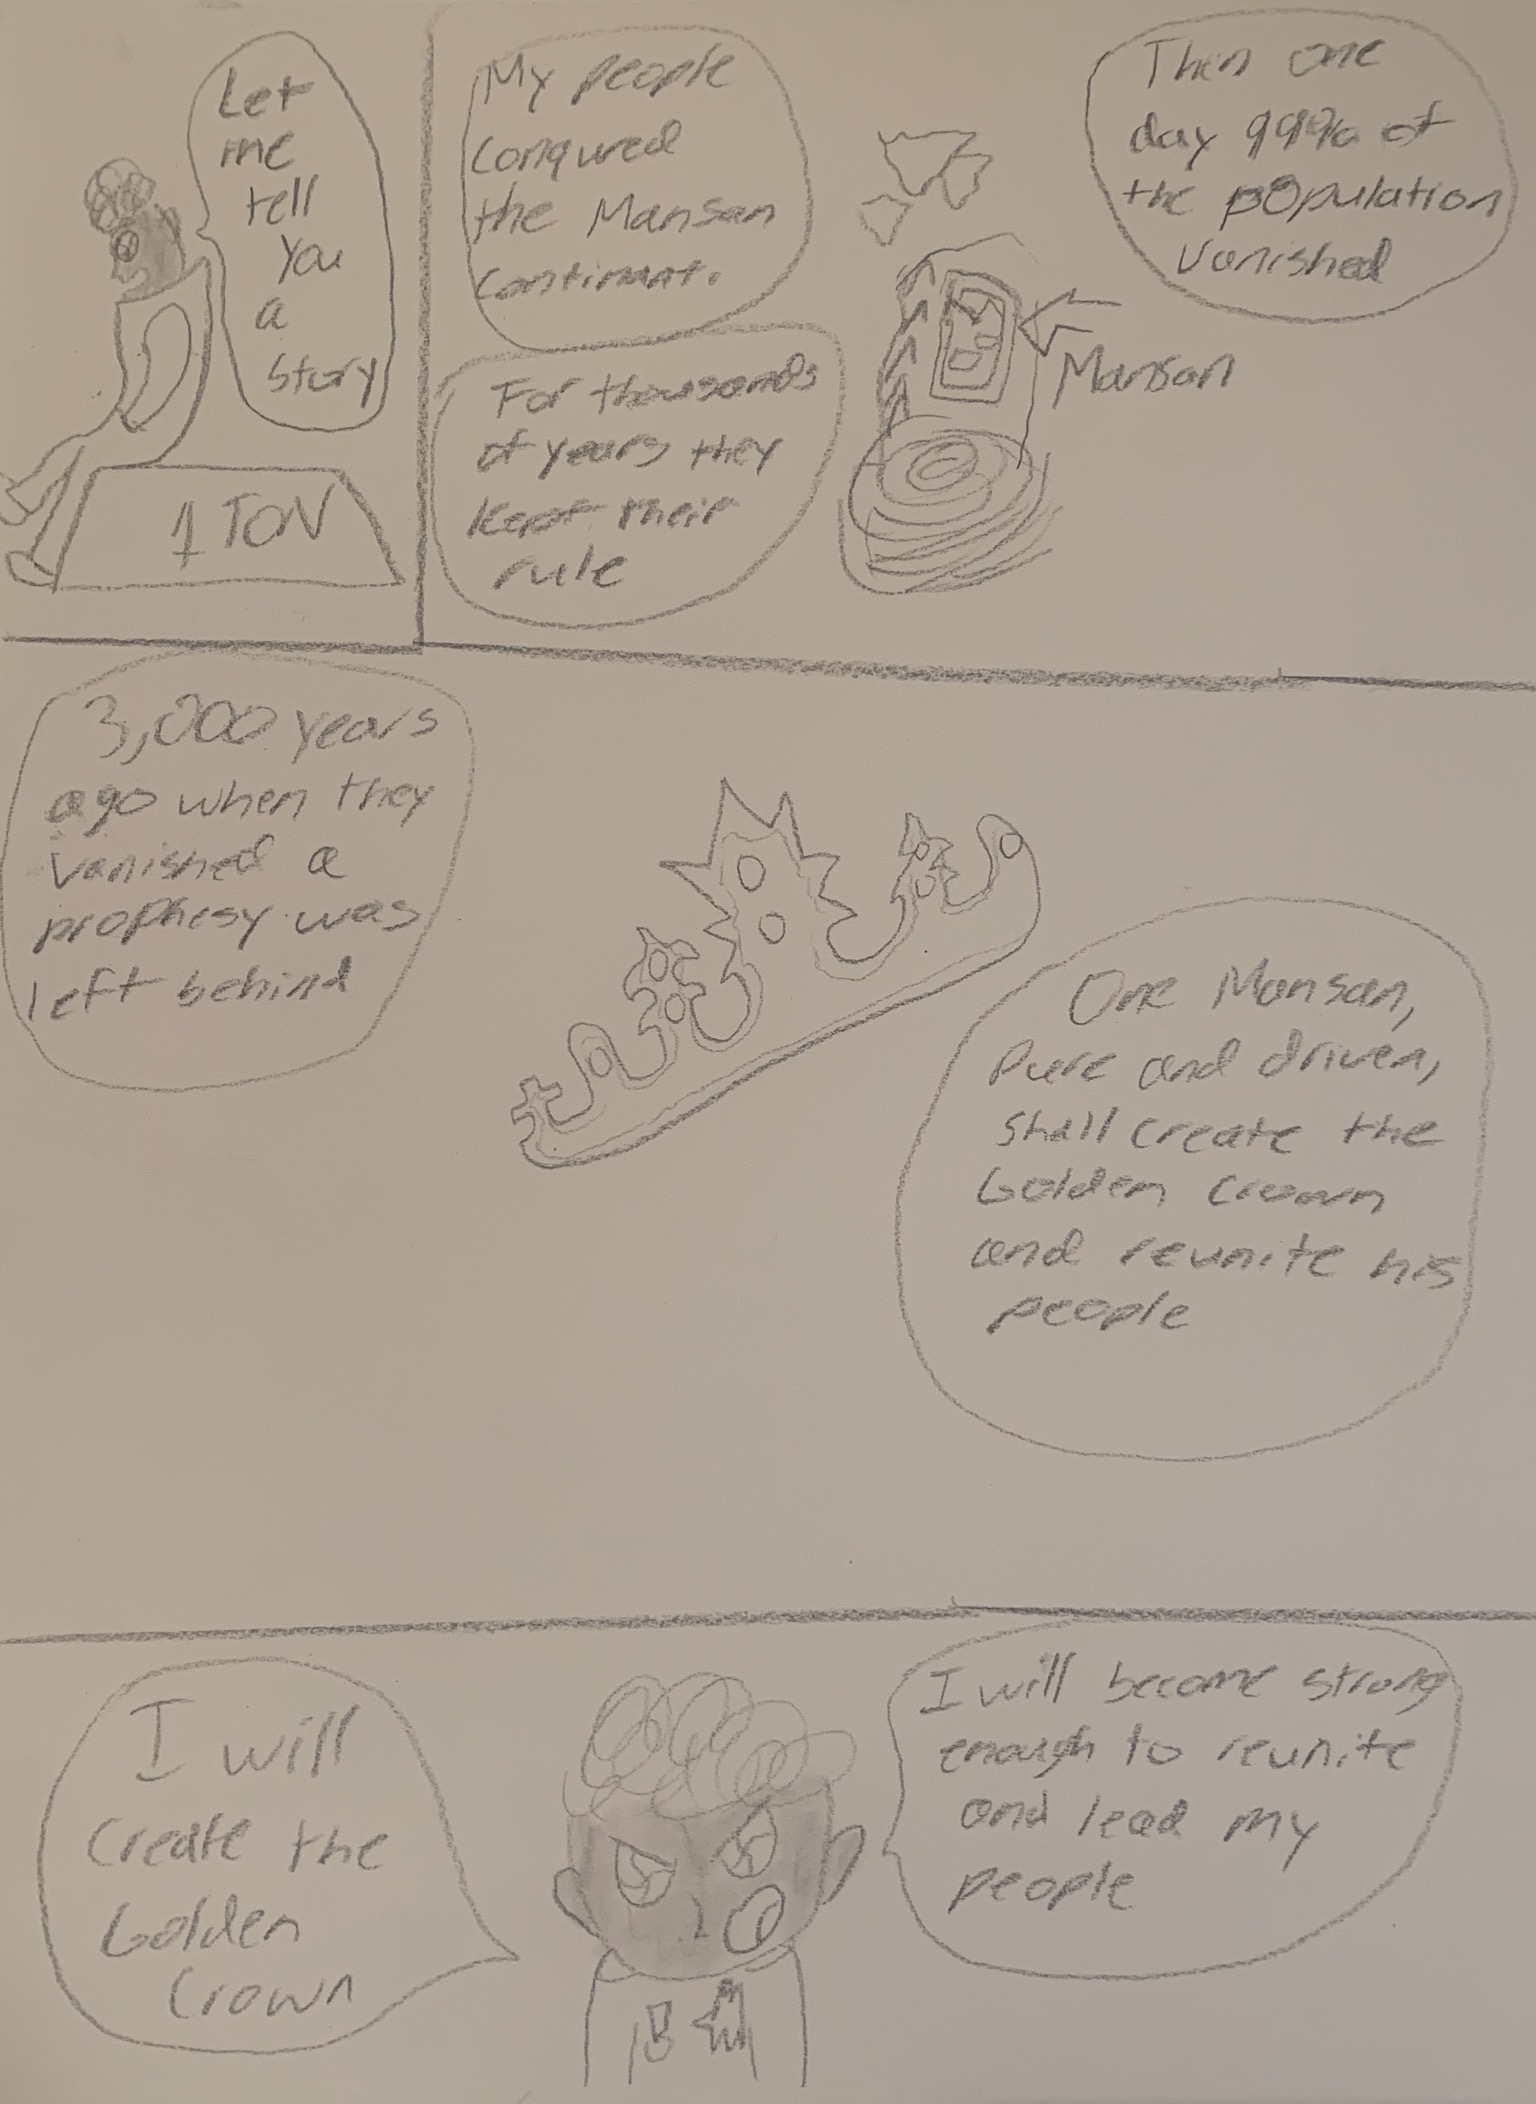 Let
me
tell
you
a
story
1 TON
My people
conqured
the Mansan
continant.
For thousands
of years they
kept their
rule
Then one
day 99% of
the population
vanished
Mansan
3,000 years
ago when they
vanished a
prophesy was
left behind
One Mansan,
Pure and driven,
shall create the
Golden crown
and reunite his
people
I will
create the
Golden
Crown
I will become strong
enough to reunite
and lead my
people